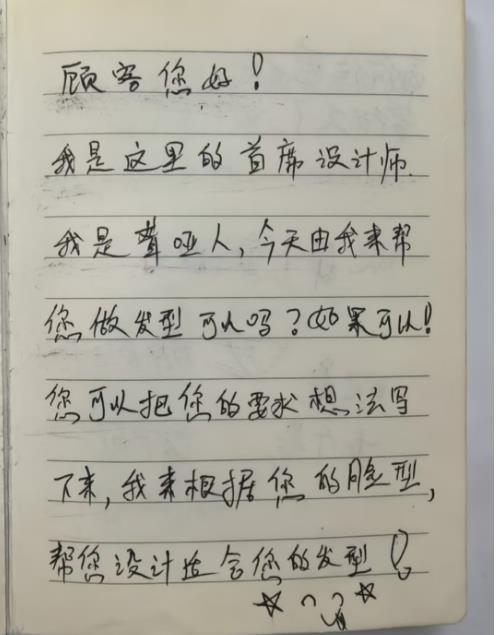 顾客您好！
我是这里的首席设计师.
我是聋哑人,今天由我来帮
您做发型可以吗？如果可以！
您可以把您的要求想法写
下来,我来根据您的脸型,
帮您设计适合您的发型！